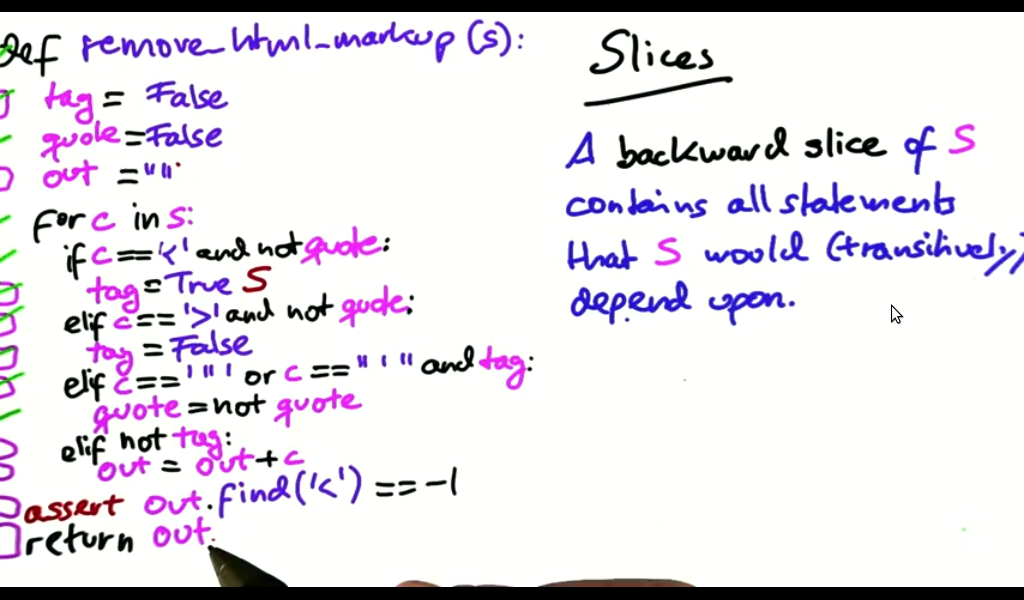 def remove_html_markup (s):
tag = False
quote = False
out = ""
for c in s:
if c == '<' and not quote:
tag = True S
elif c == '>' and not quote:
tag = False
elif c == '"' or c == "'" and tag:
quote = not quote
elif not tag:
out = out + c
assert out.find('<') == -1
return out
Slices
A backward slice of S
contains all statements
that S would (transitively)
depend upon.